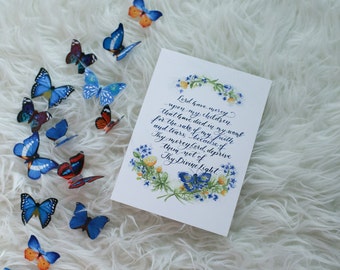 Lord have mercy
upon my children
that have died in my womb
for the sake of my faith
and tears, because of
Thy mercy Lord, deprive
them not of
Thy Divine Light